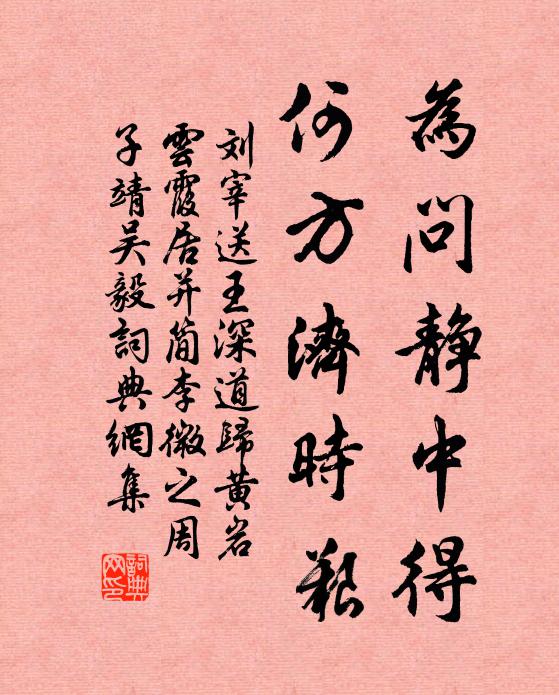 為問静中得
何方濟時艱
刘宰送王深道歸黄岩
雲霞居并简李微之周
子靖吴毅詞典網集
詞典
网印